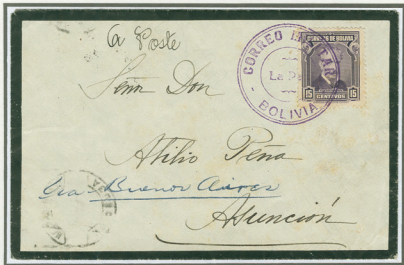 A Poste
CORREO MILITAR
La Paz
BOLIVIA
CORREOS DE BOLIVIA
15 15
CENTAVOS
Señor Don
Atilio Peña
Via Buenos Aires
Asunción